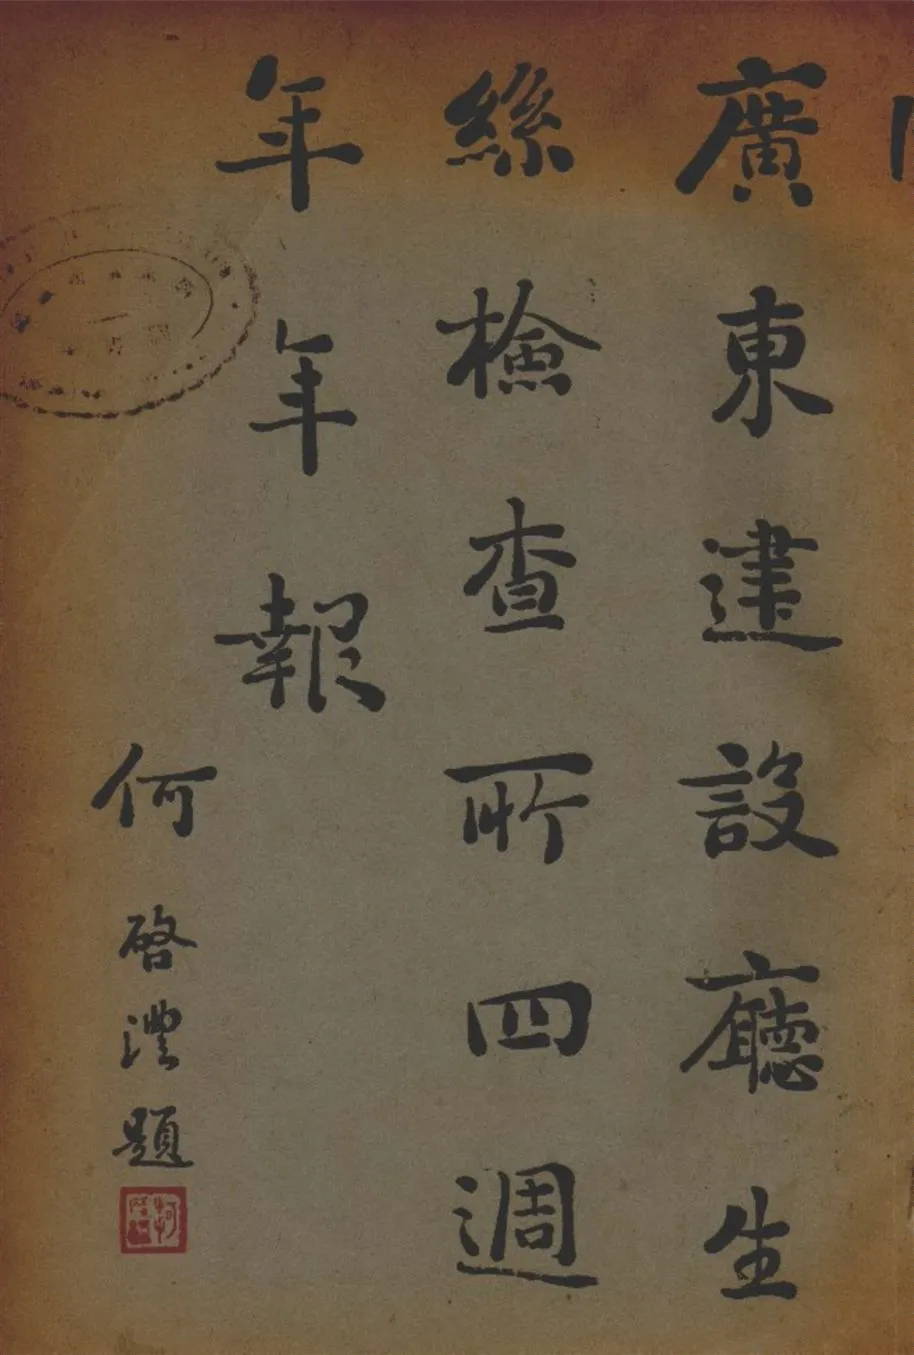 廣東建設廳生
絲檢查所四週
年年報
何啓澧題